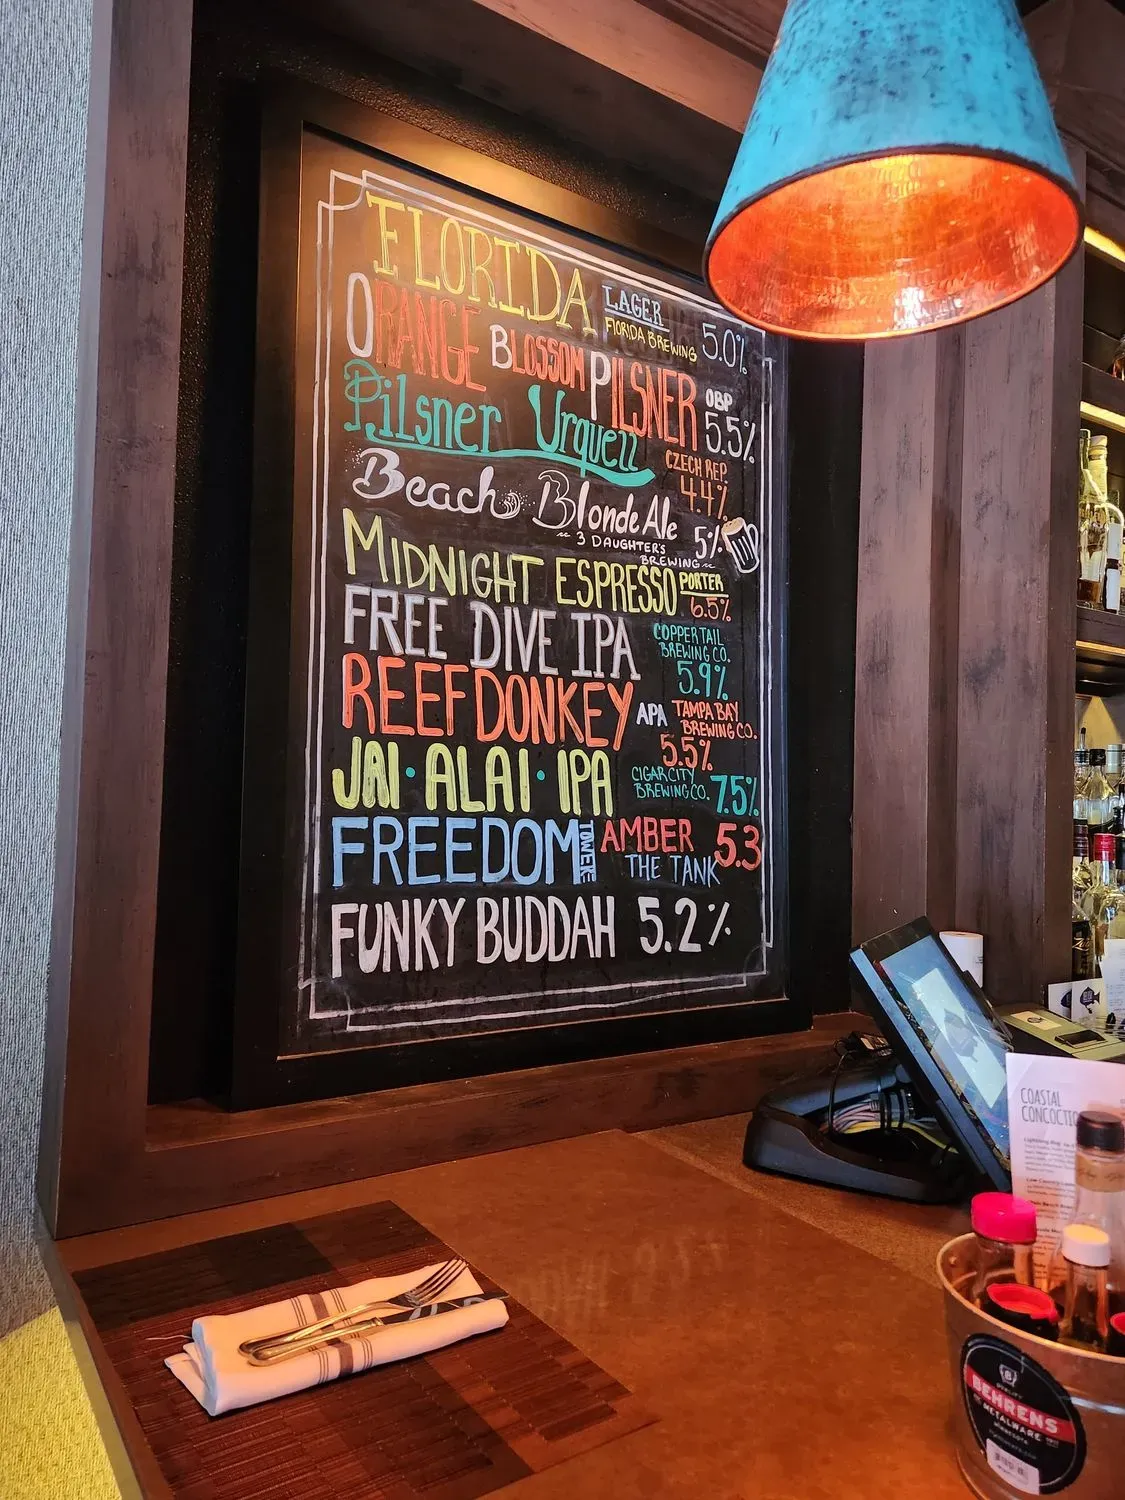 FLORIDA LAGER
FLORIDA BREWING 5.0%
ORANGE BLOSSOM PILSNER OBP
5.5%
Pilsner Urquell CZECH REP.
4.4%
Beach Blonde Ale 5%
~ 3 DAUGHTER'S
BREWING ~
MIDNIGHT ESPRESSO PORTER
6.5%
FREE DIVE IPA COPPERTAIL
BREWING CO.
5.9%
REEFDONKEY APA TAMPA BAY
BREWING CO.
5.5%
JAI · ALAI · IPA CIGAR CITY
BREWING CO. 7.5%
FREEDOM TOWER AMBER 5.3
THE TANK
FUNKY BUDDAH 5.2%
COASTAL
BEHRENS
METALWARE
MINNESOTA